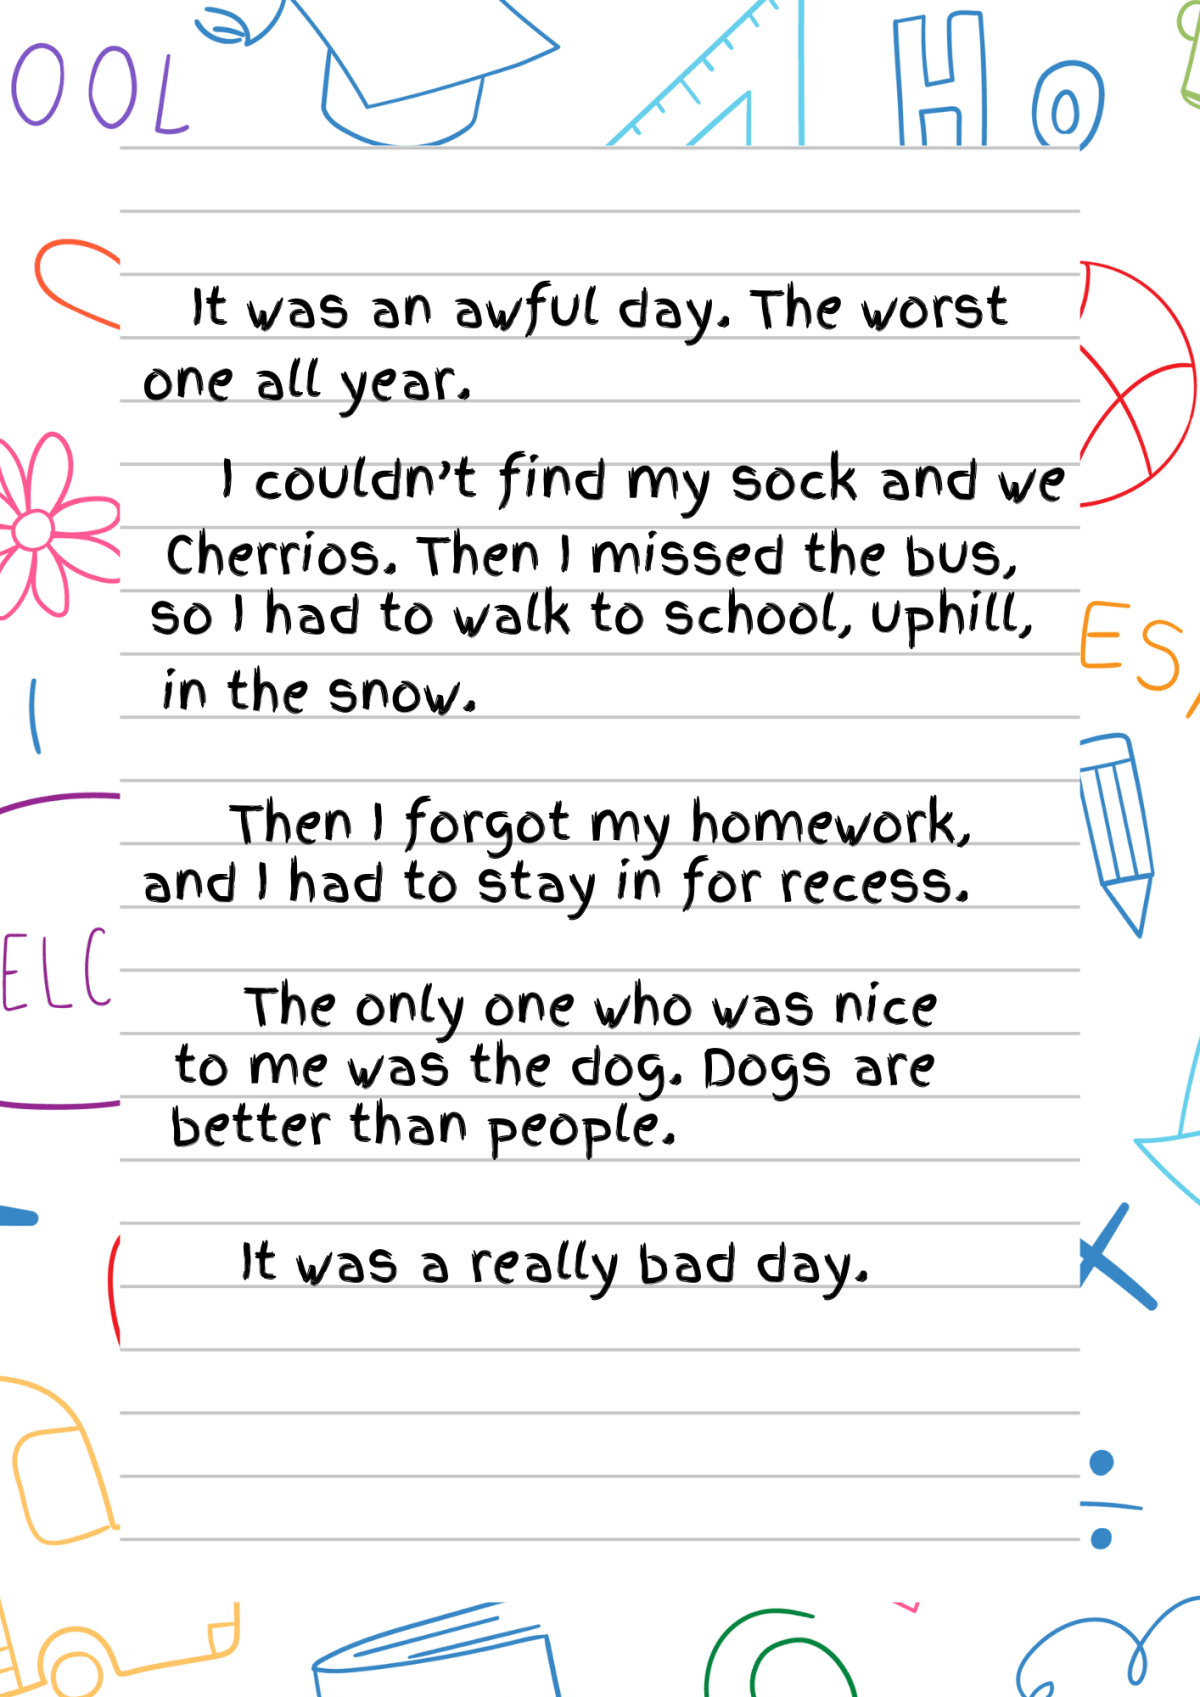 OOL
Ho
It was an awful day. The worst
one all year.
I couldn't find my sock and we
Cherrios. Then I missed the bus,
so I had to walk to school, uphill,
in the snow.
Then I forgot my homework,
and I had to stay in for recess.
The only one who was nice
to me was the dog. Dogs are
better than people.
It was a really bad day.
ES,
ELC